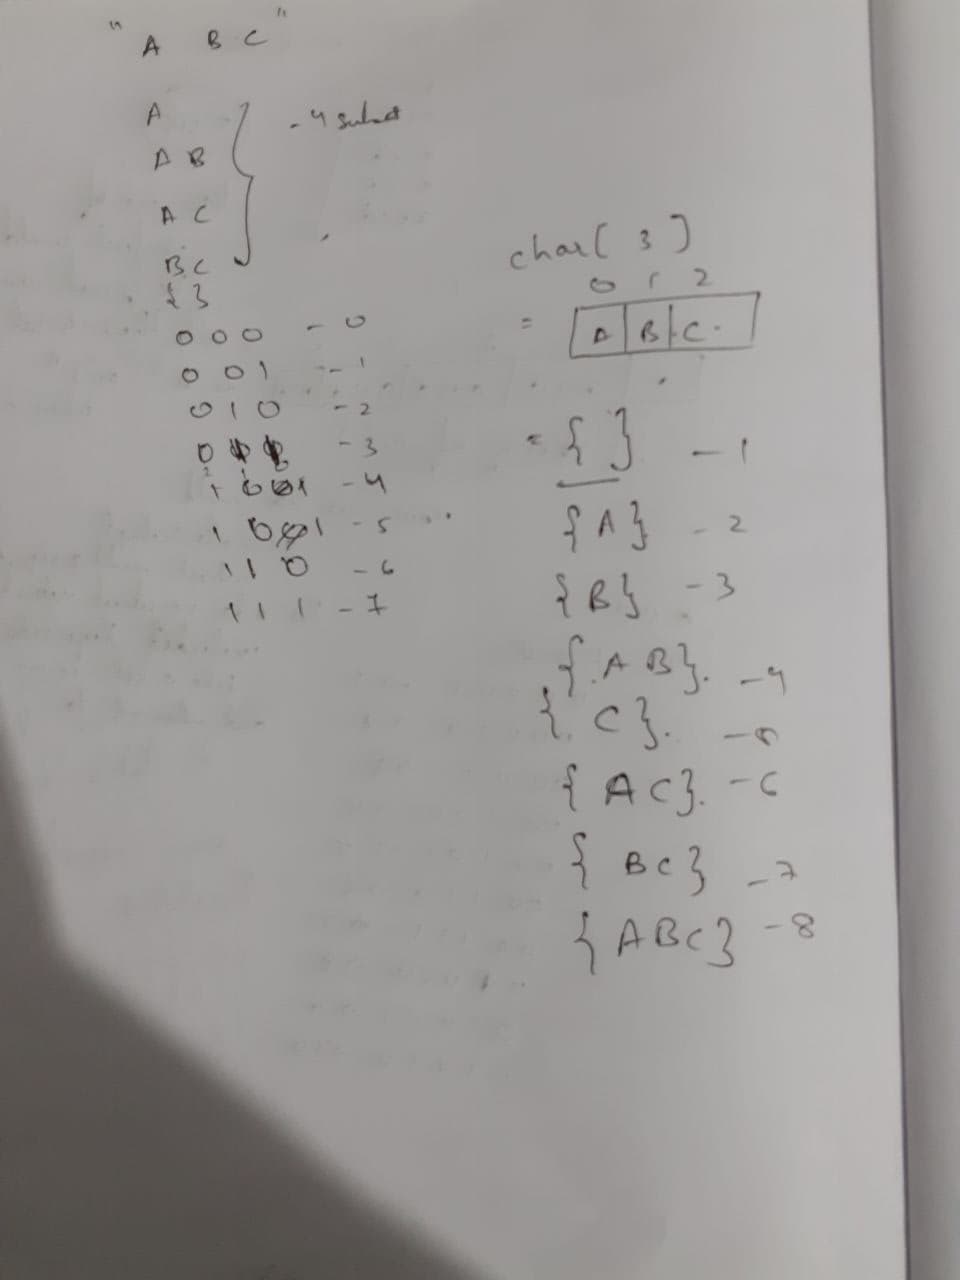 " A B C "
A
A B
A C
B C
{ }
- 4
0 0 0 - 0
0 0 1 - 1
0 1 0 - 2
0 - 3
1 0 - 4
1 0 1 - 5
1 1 0 - 6
1 1 1 - 7
char[ 3 ]
0 1 2
= A B C
= { } - 1
{ A } - 2
{ B } - 3
{ A B } - 4
{ C }
{ A C } - 6
{ B C } - 7
{ A B C } - 8